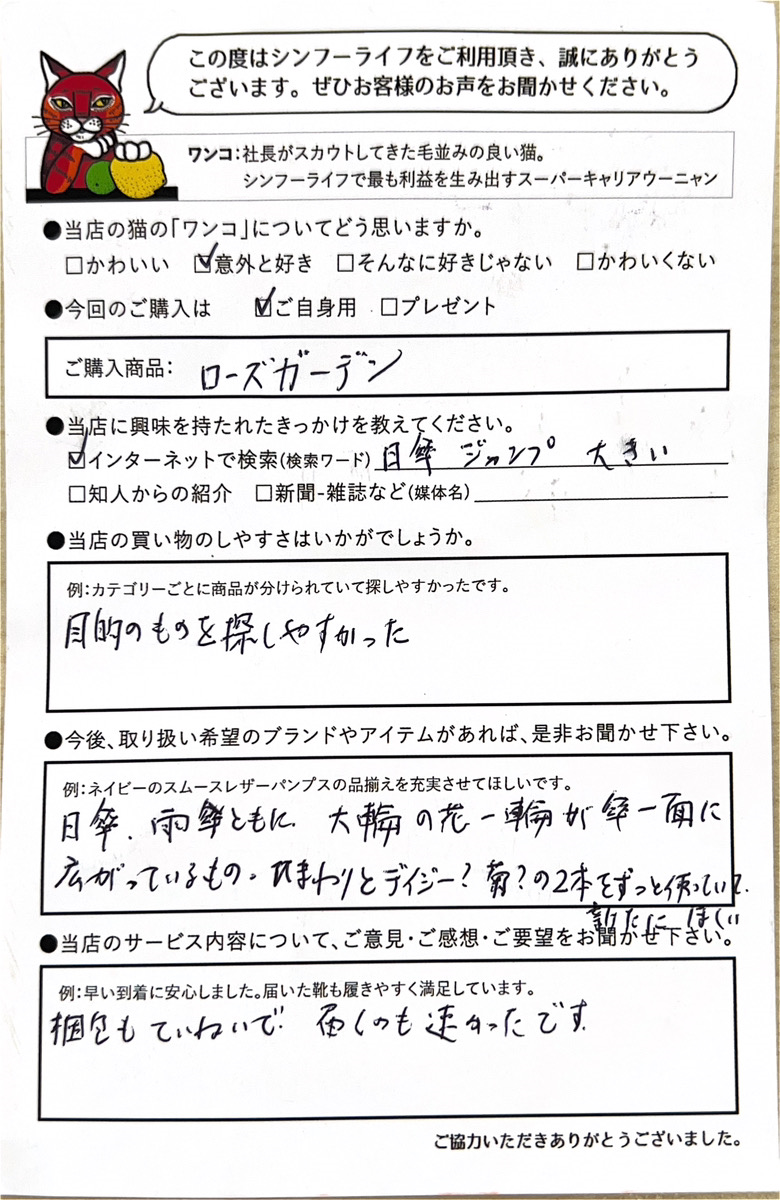 この度はシンフーライフをご利用頂き、誠にありがとう
ございます。ぜひお客様のお声をお聞かせください。
ワンコ：社長がスカウトしてきた毛並みの良い猫。
シンフーライフで最も利益を生み出すスーパーキャリアウーニャン
●当店の猫の「ワンコ」についてどう思いますか。
□かわいい ☑意外と好き □そんなに好きじゃない □かわいくない
●今回のご購入は ☑ご自身用 □プレゼント
ご購入商品： ローズガーデン
●当店に興味を持たれたきっかけを教えてください。
☑インターネットで検索(検索ワード) 日傘 ジャンプ 大きい
□知人からの紹介 □新聞-雑誌など(媒体名)
●当店の買い物のしやすさはいかがでしょうか。
例：カテゴリーごとに商品が分けられていて探しやすかったです。
目的のものを探しやすかった
●今後、取り扱い希望のブランドやアイテムがあれば、是非お聞かせ下さい。
例：ネイビーのスムースレザーパンプスの品揃えを充実させてほしいです。
日傘、雨傘ともに、大輪の花一輪が傘一面に
広がっているもの。ひまわりとデイジー？菊？の2本をずっと使っていて、
新たにほしい
●当店のサービス内容について、ご意見・ご感想・ご要望をお聞かせ下さい。
例：早い到着に安心しました。届いた靴も履きやすく満足しています。
梱包もていねいで、届くのも速かったです。
ご協力いただきありがとうございました。